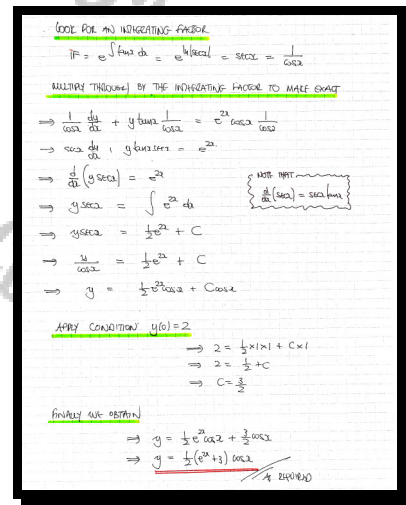 LOOK FOR AN INTEGRATING FACTOR
IF = e^{∫tanx dx} = e^{ln|secx|} = secx = 1/cosx
MULTIPLY THROUGH BY THE INTEGRATING FACTOR TO MAKE EXACT
⇒ 1/cosx dy/dx + y tanx 1/cosx = e^{2x} cosx 1/cosx
⇒ secx dy/dx + y tanx secx = e^{2x}
⇒ d/dx (y secx) = e^{2x}
NOTE THAT
d/dx (secx) = secx tanx
⇒ y secx = ∫ e^{2x} dx
⇒ y secx = ½e^{2x} + C
⇒ y/cosx = ½e^{2x} + C
⇒ y = ½e^{2x}cosx + Ccosx
APPLY CONDITION y(0)=2
⇒ 2 = ½×1×1 + C×1
⇒ 2 = ½ + C
⇒ C = 3/2
FINALLY WE OBTAIN
⇒ y = ½e^{2x}cosx + 3/2 cosx
⇒ y = ½(e^{2x}+3)cosx
As REQUIRED